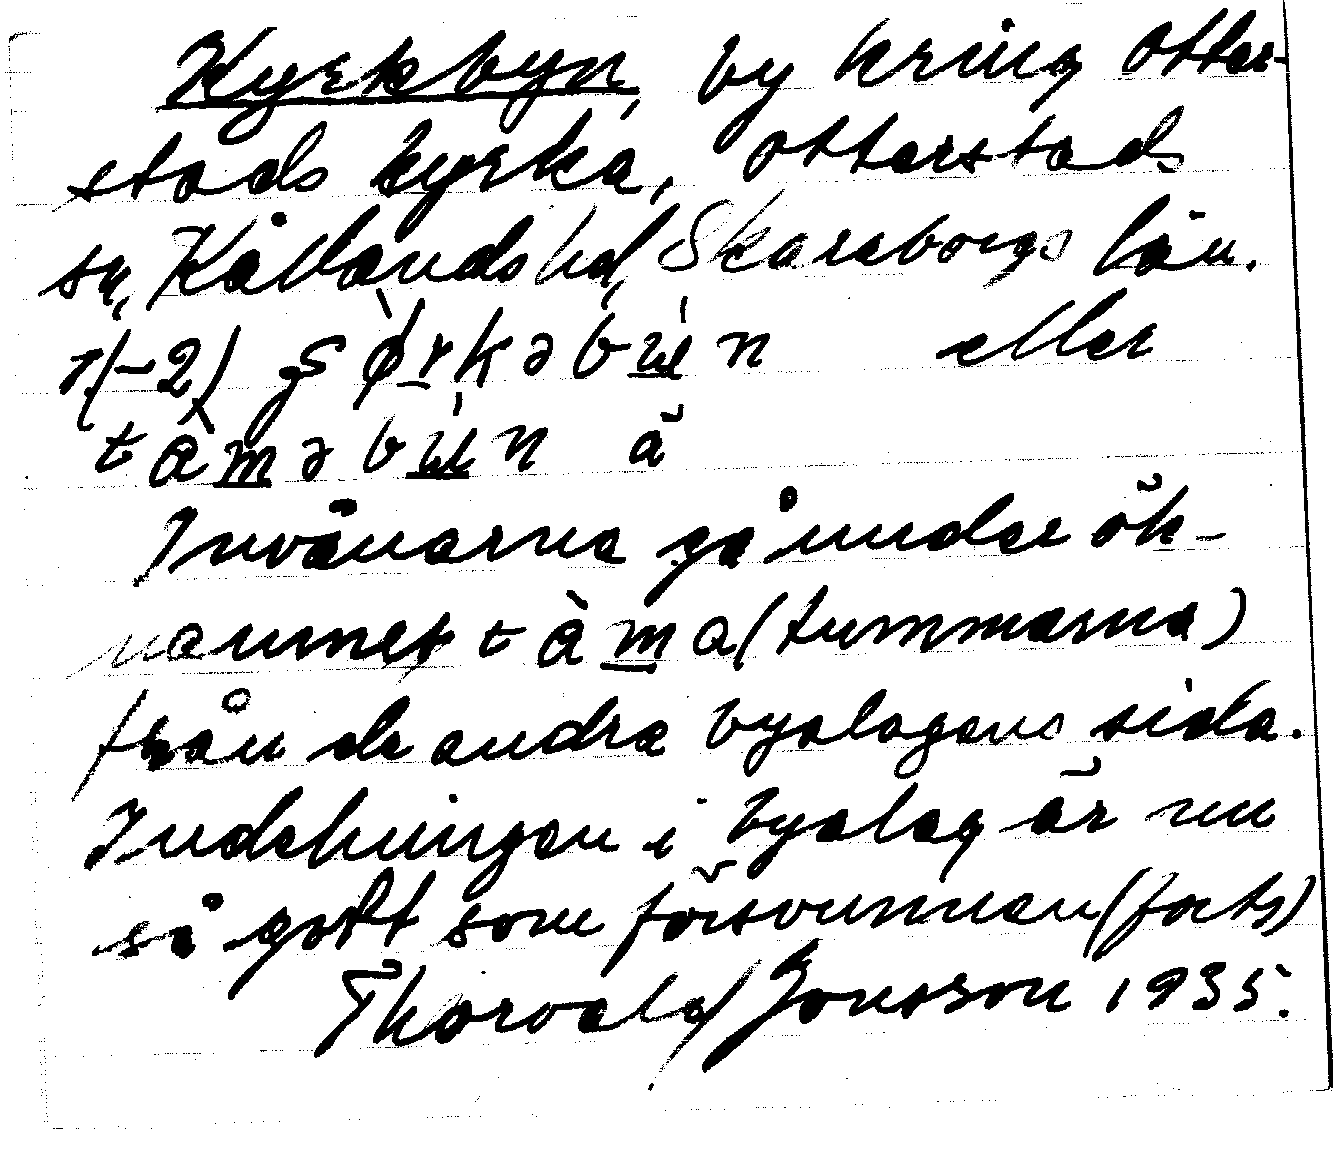 Kyrkbyn, by kring Otter-
stads kyrka, Otterstads
sn, Kållands hd, Skaraborgs län.
1(-2) ʂ ø̀rkəbɯ́n eller
tàməbɯ́n ä
Invånarna gå under ök-
namnet tàma (tummarna)
från de andra byalagens sida.
Indelningen i byalag är nu
så gott som försvunnen (forts)
Thorvald Jonsson 1935.